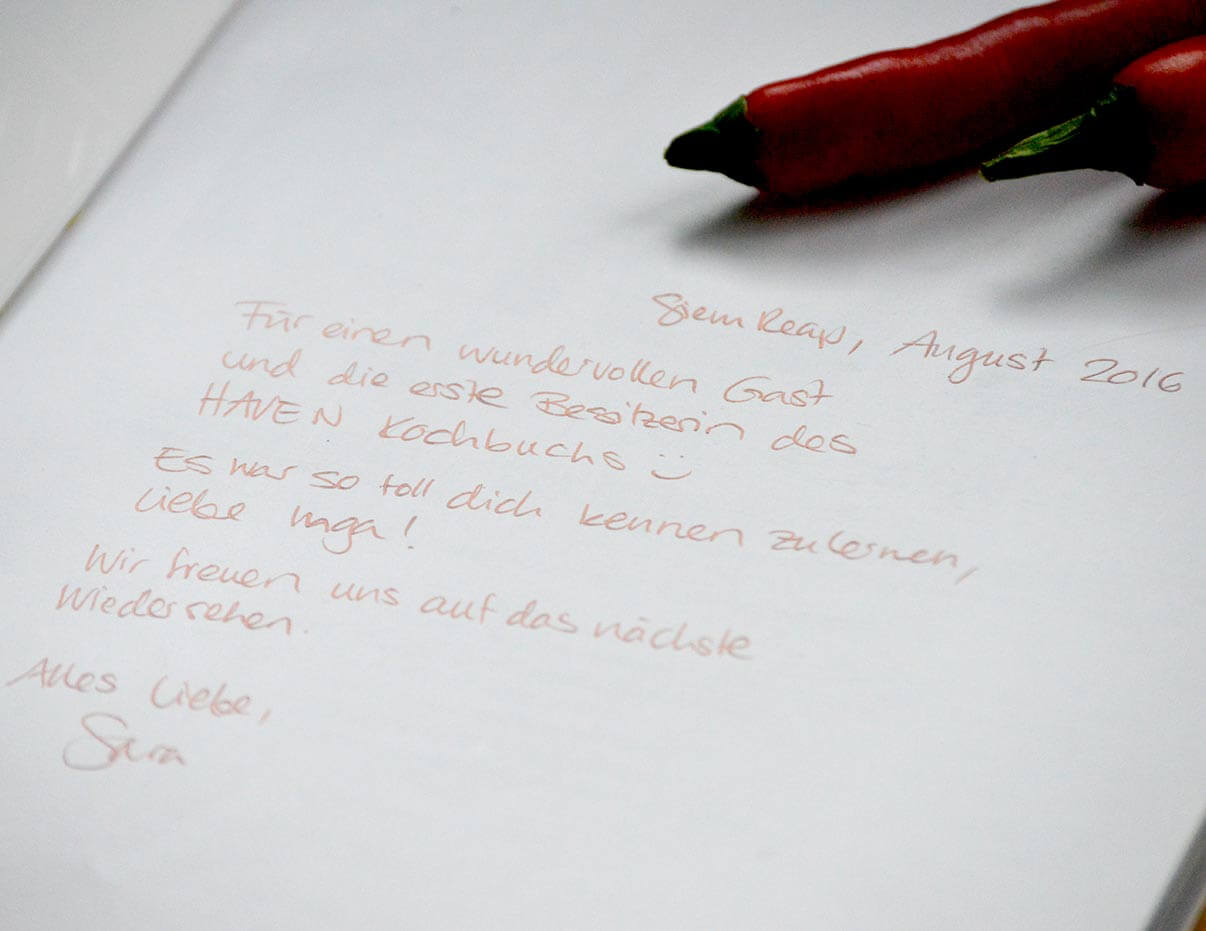 Siem Reap, August 2016
Für einen wundervollen Gast
und die erste Besitzerin des
HAVEN Kochbuchs :)
Es war so toll dich kennen zulernen,
liebe Inga!
Wir freuen uns auf das nächste
Wiedersehen.
Alles Liebe,
Sara